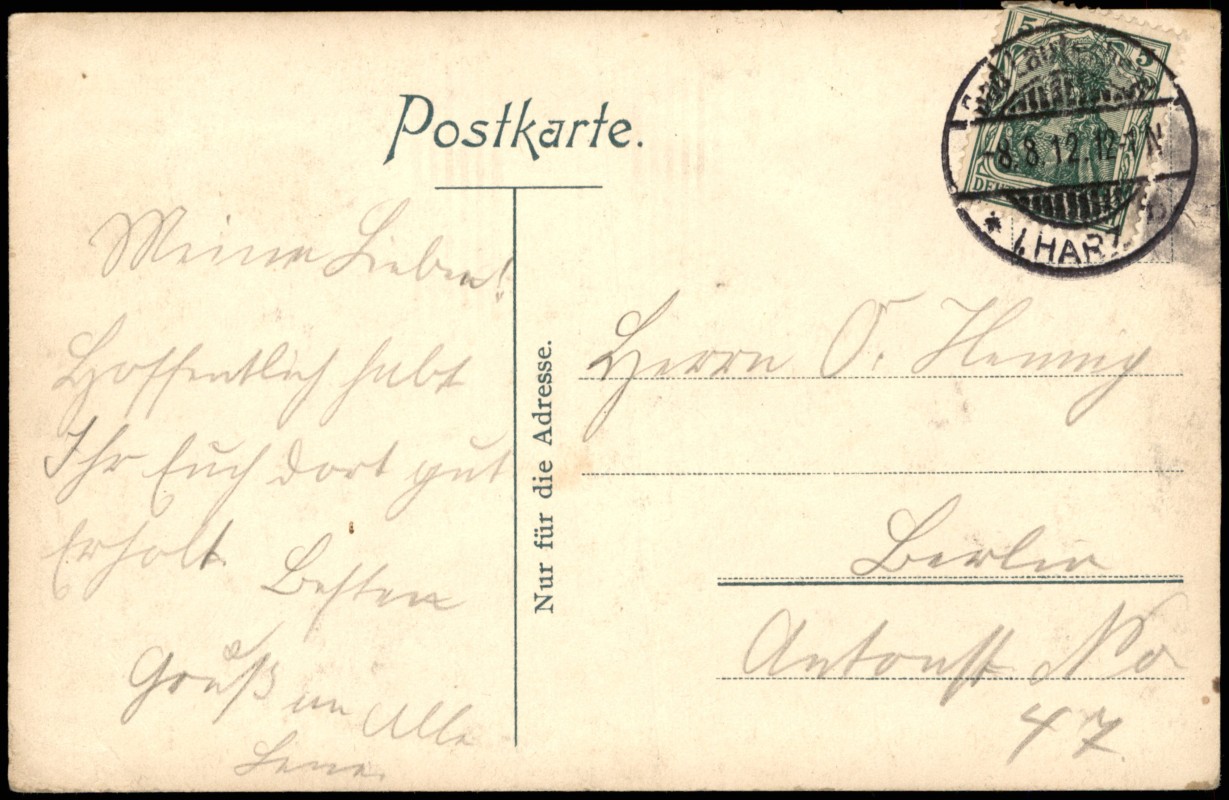 Postkarte.
Meine Lieben!
Hoffentlich habt
Ihr Euch dort gut
Erholt. Besten
Gruß an Alle
Nur für die Adresse.
Herrn O. Hennig
Berlin
Antonst. No
47
5 5
Bad Lauterberg
-8.8.12.12-1N
* (HARZ